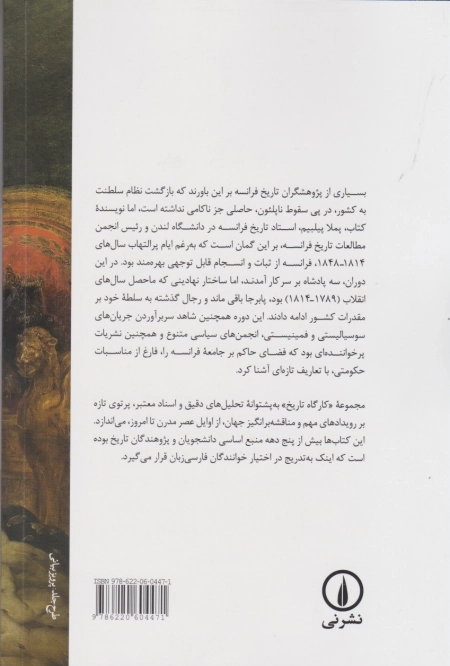 بسیاری از پژوهشگران تاریخ فرانسه بر این باورند که بازگشت نظام سلطنت
به کشور، در پی سقوط ناپلئون، حاصلی جز ناکامی نداشته است، اما نویسندهٔ
کتاب، پملا پیلبیم، استاد تاریخ فرانسه در دانشگاه لندن و رئیس انجمن
مطالعات تاریخ فرانسه، بر این گمان است که به‌رغم ایام پرالتهاب سال‌های
۱۸۱۴-۱۸۴۸، فرانسه از ثبات و انسجام قابل توجهی بهره‌مند بود. در این
دوران، سه پادشاه بر سر کار آمدند، اما ساختار نهادینی که ماحصل سال‌های
انقلاب (۱۷۸۹-۱۸۱۴) بود، پابرجا باقی ماند و رجال گذشته به سلطهٔ خود بر
مقدرات کشور ادامه دادند. این دوره همچنین شاهد سربرآوردن جریان‌های
سوسیالیستی و فمینیستی، انجمن‌های سیاسی متنوع و همچنین نشریات
پرخواننده‌ای بود که فضای حاکم بر جامعهٔ فرانسه را، فارغ از مناسبات
حکومتی، با تعاریف تازه‌ای آشنا کرد.
مجموعهٔ «کارگاه تاریخ» به‌پشتوانهٔ تحلیل‌های دقیق و اسناد معتبر، پرتوی تازه
بر رویدادهای مهم و مناقشه‌برانگیز جهان، از اوایل عصر مدرن تا امروز، می‌اندازد.
این کتاب‌ها بیش از پنج دهه منبع اساسی دانشجویان و پژوهندگان تاریخ بوده
است که اینک به‌تدریج در اختیار خوانندگان فارسی‌زبان قرار می‌گیرد.
طرح جلد: پرویز بیانی
ISBN: 978-622-06-0447-1
9 786220 604471
نشرنی